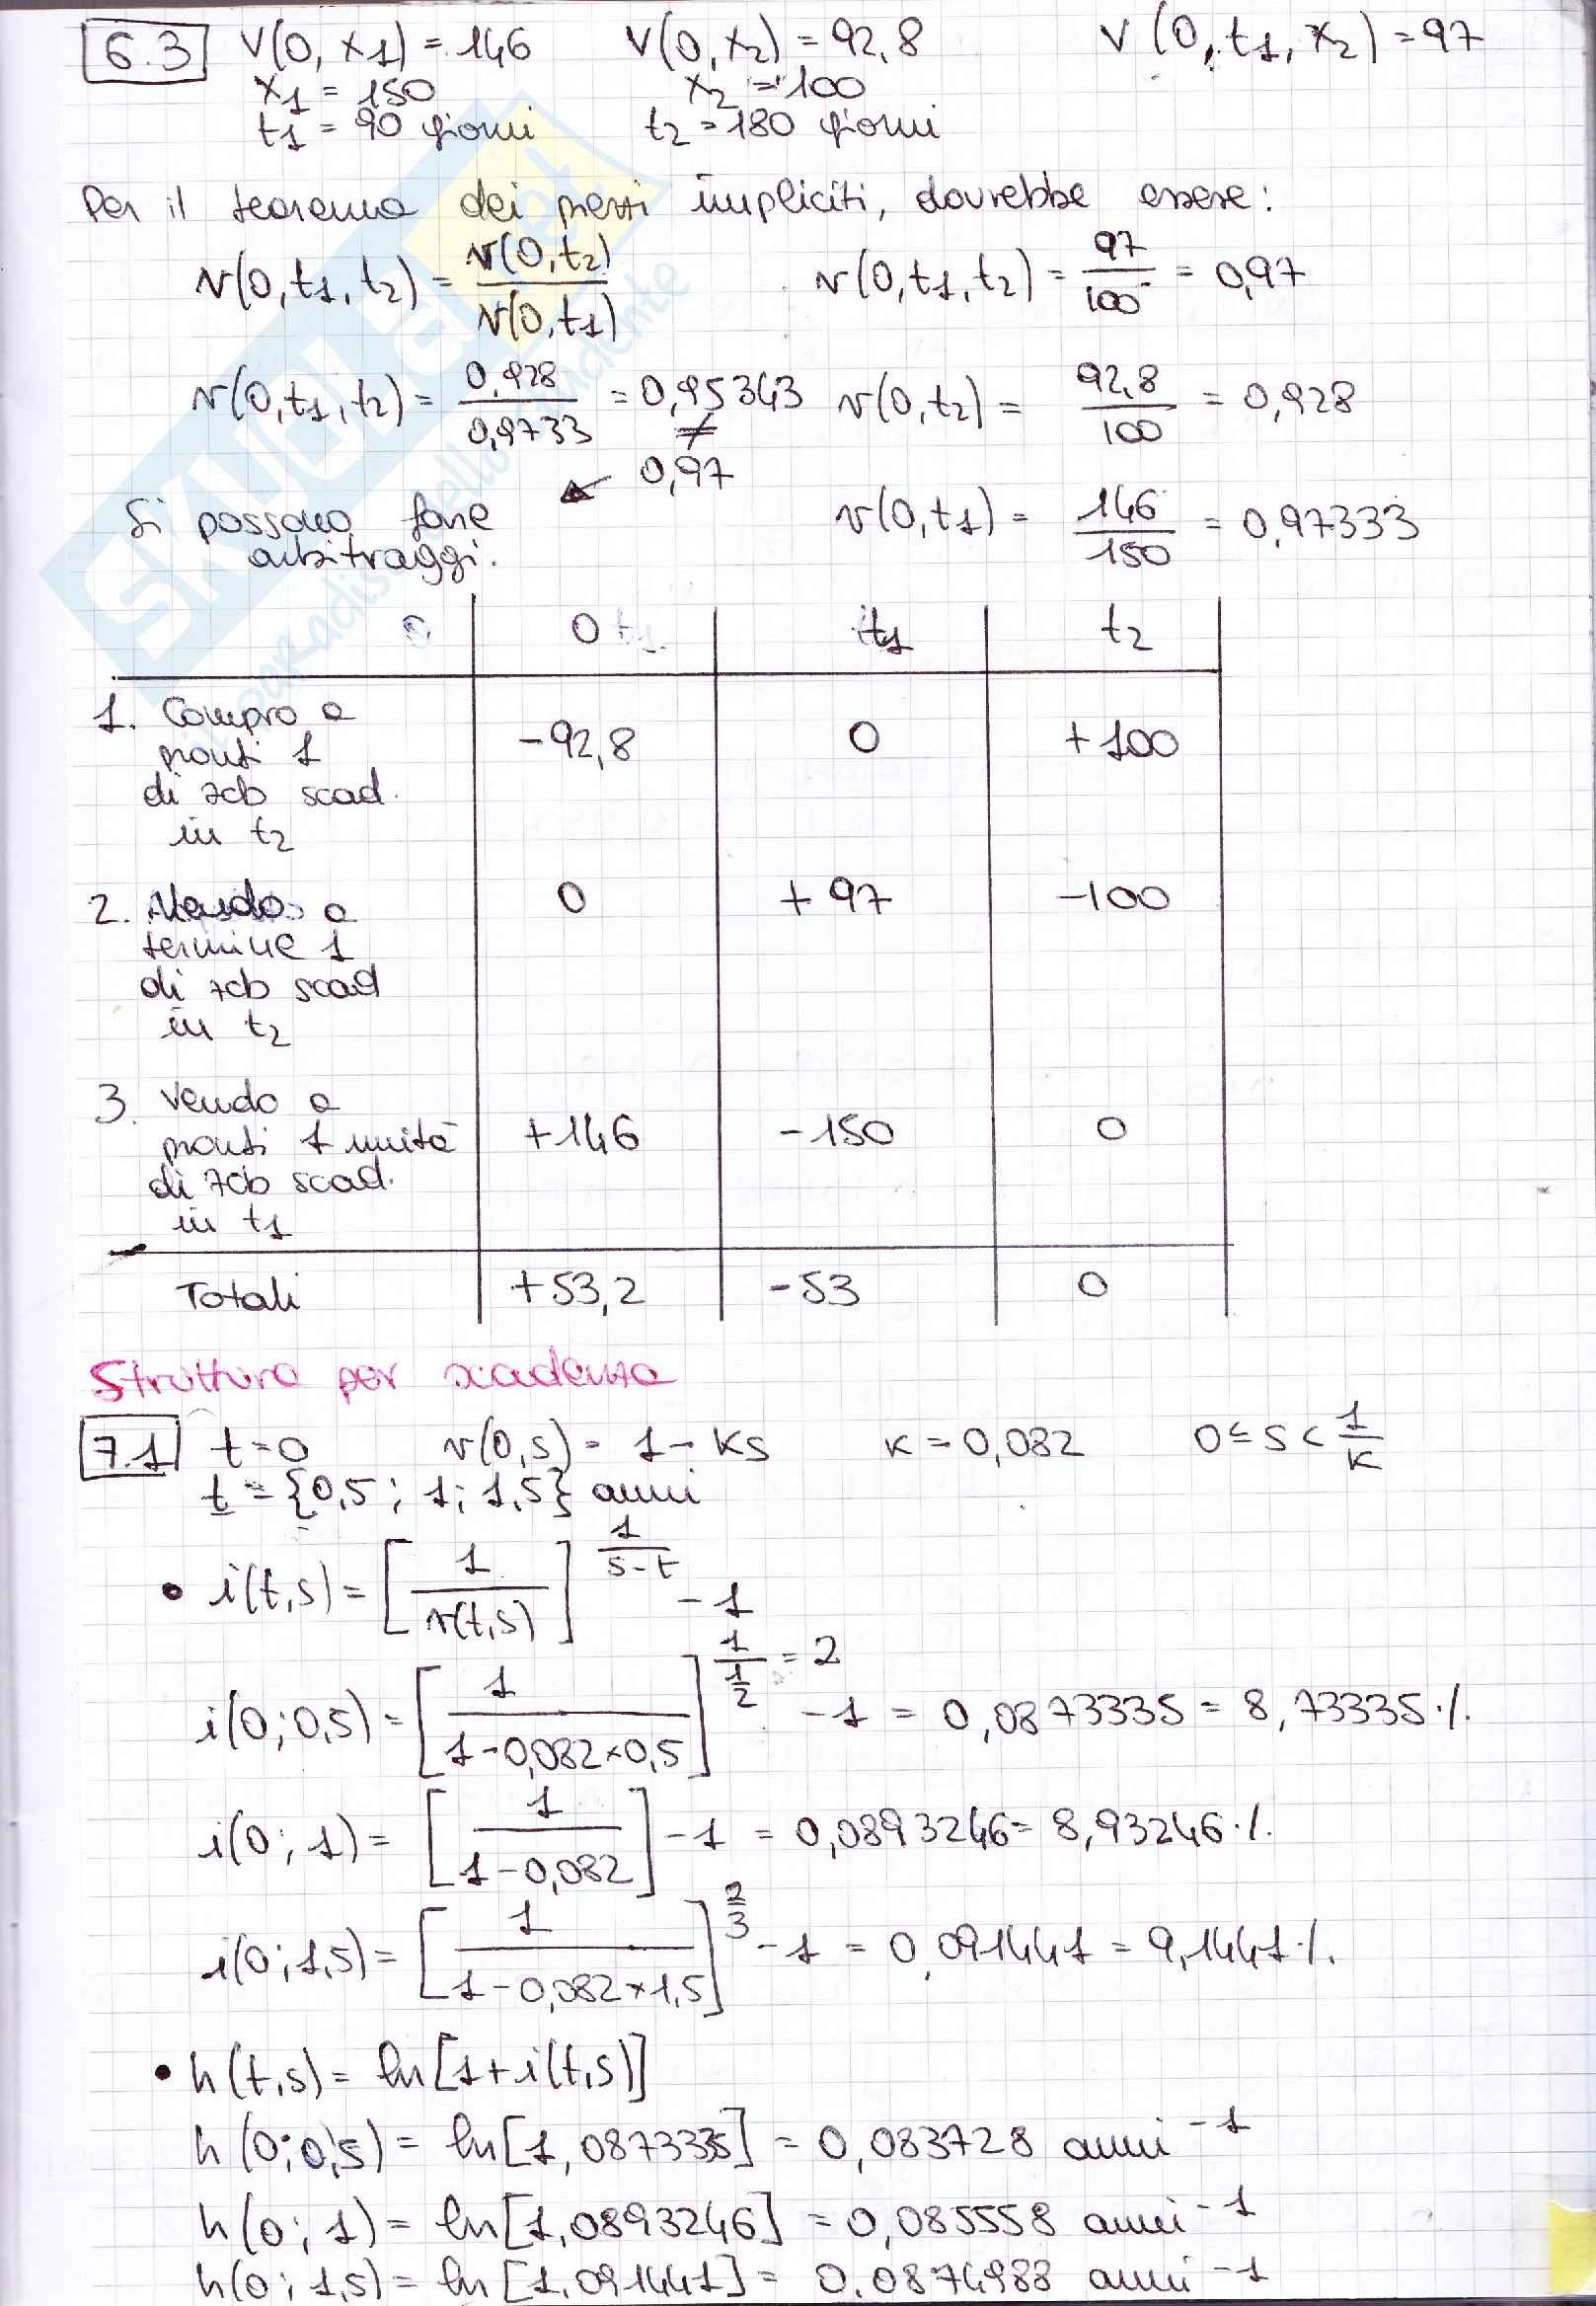 6.3 V(0, x1) = 146 V(0, x2) = 92,8 V(0, t1, x2) = 97
x1 = 150 x2 = 100
t1 = 90 giorni t2 = 180 giorni
Per il teorema dei prezzi impliciti, dovrebbe essere:
v(0, t1, t2) = v(0, t2) / v(0, t1) v(0, t1, t2) = 97/100 = 0,97
v(0, t1, t2) = 0,928/0,9733 = 0,95343 v(0, t2) = 92,8/100 = 0,928
≠
0,97
Si possono fare v(0, t1) = 146/150 = 0,97333
arbitraggi.
0 t1 t2
1. Compro a
pronti 1 -92,8 0 +100
di zcb scad.
in t2
2. Vendo a 0 +97 -100
termine 1
di zcb scad
in t2
3. Vendo a
pronti 1 unità +146 -150 0
di zcb scad.
in t1
Totali +53,2 -53 0
Struttura per scadenza
7.1 t = 0 v(0, s) = 1 - ks k = 0,082 0 ≤ s < 1/k
t = {0,5 ; 1 ; 1,5} anni
• i(t,s) = [1 / v(t,s)]^(1/(s-t)) - 1
i(0; 0,5) = [1 / (1-0,082×0,5)]^(1/(1/2) = 2) - 1 = 0,0873335 = 8,73335 ·/.
i(0; 1) = [1 / (1-0,082)] - 1 = 0,0893246 = 8,93246 ·/.
i(0; 1,5) = [1 / (1-0,082×1,5)]^(2/3) - 1 = 0,091441 = 9,1441 ·/.
• h(t,s) = ln[1+i(t,s)]
h(0; 0,5) = ln[1,0873335] = 0,083728 anni^-1
h(0; 1) = ln[1,0893246] = 0,085558 anni^-1
h(0; 1,5) = ln[1,091441] = 0,0874988 anni^-1
SKUOLA.net
il paradiso dello studente